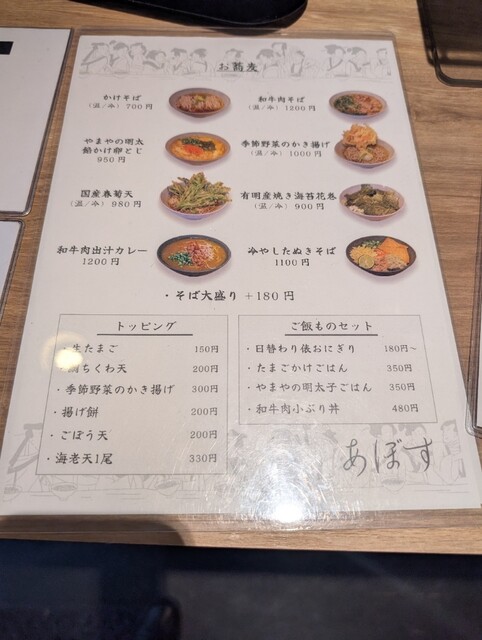 お蕎麦
かけそば
(温/冷) 700円
和牛肉そば
(温/冷) 1200円
やまやの明太
餡かけ卵とじ
950円
季節野菜のかき揚げ
(温/冷) 1000円
国産春菊天
(温/冷) 980円
有明産焼き海苔花巻
(温/冷) 900円
和牛肉出汁カレー
1200円
冷やしたぬきそば
1100円
・そば大盛り +180円
トッピング
生たまご 150円
ちくわ天 200円
・季節野菜のかき揚げ 300円
・揚げ餅 200円
・ごぼう天 200円
・海老天1尾 330円
ご飯ものセット
・日替わり俵おにぎり 180円~
・たまごかけごはん 350円
・やまやの明太子ごはん 350円
・和牛肉小ぶり丼 480円
あぼす